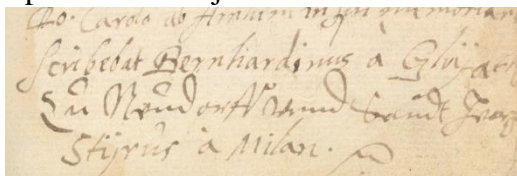 Carolo ab Arnhim in sui memoriam
scribebat Bernhardinus à
Zu Neudorff vnnd Sandt
Stijrus à Milan.